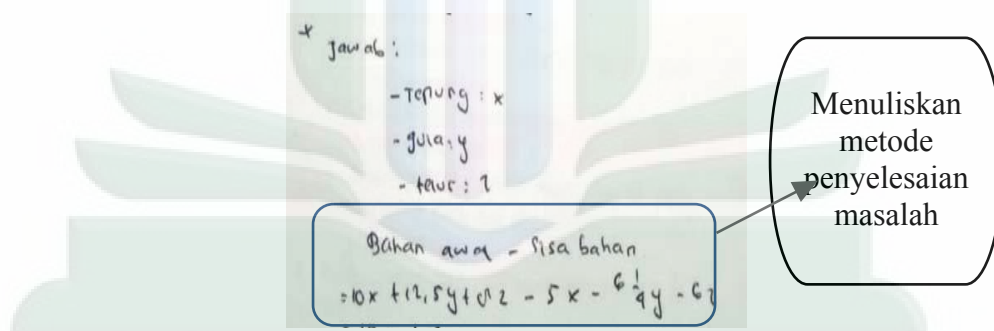 * Jawab :
- Tepung : x
- gula : y
- telur : z
Bahan awal - Sisa bahan
= 10x + 12,5y + z - 5x - 6 1/4 y - 6z
Menuliskan
metode
penyelesaian
masalah